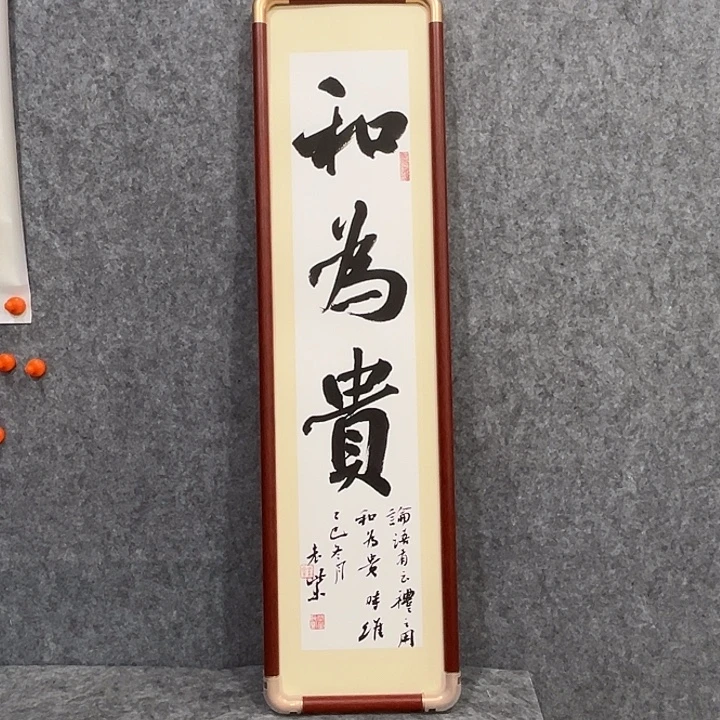 和為貴
論語有云禮之用
和為貴 時維
乙巳冬月